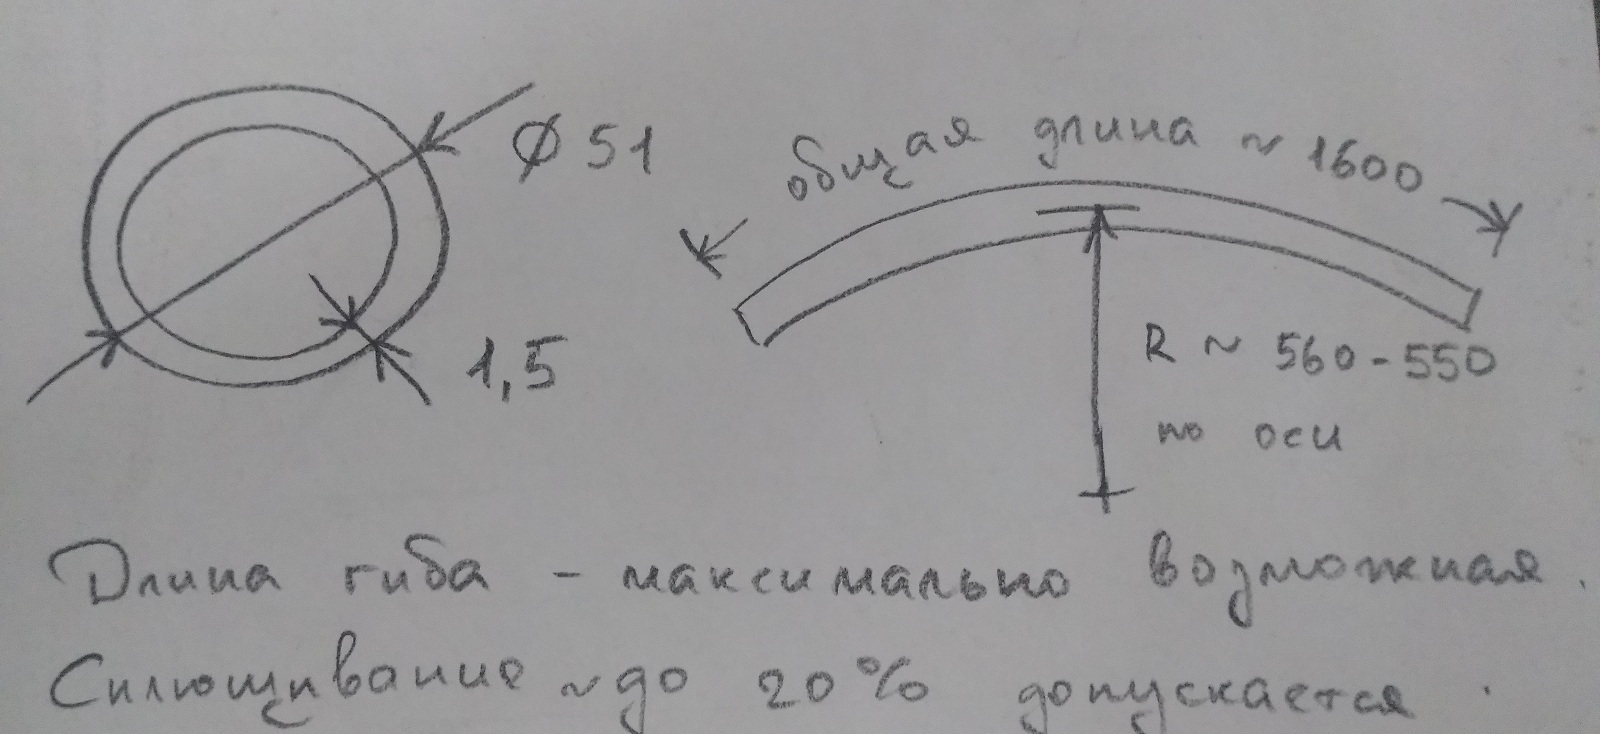 ⌀ 51
1,5
общая длина ~ 1600
R ~ 560-550
по оси
Длина гиба - максимально возможная.
Сплющивание ~ до 20% допускается.